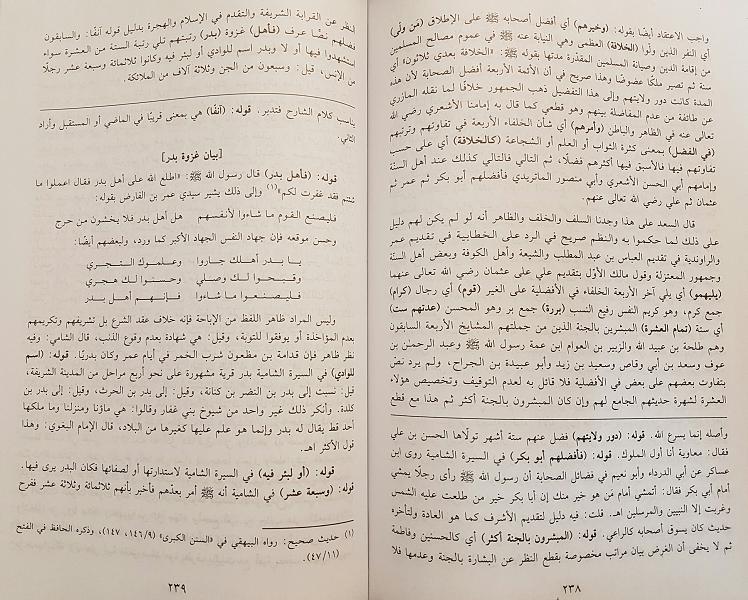 واجب الاعتقاد أيضًا بقوله: (وخيرهم) أي أفضل أصحابه ﷺ على الإطلاق (مَن ولّي)
أي النفر الذين ولُوا (الخلافة) العظمى وهي النيابة عنه ﷺ في عموم مصالح المسلمين
من إقامة الدين وصيانة المسلمين المقدّرة مدتها بقوله ﷺ: «الخلافة بعدي ثلاثون» أي
سنة ثم تصير ملكًا عضوضًا وهذا صريح في أن الأئمة الأربعة أفضل الصحابة لأن هذه
المدة كانت دور ولايتهم وإلى هذا التفضيل ذهب الجمهور خلافًا لما نقله المازري
عن طائفة من عدم المفاضلة بينهم وهو قطعي كما قال به إمامنا الأشعري رضي الله
تعالى عنه في الظاهر والباطن (وأمرهم) أي شأن الخلفاء الأربعة في تفاوتهم وترتبهم
(في الفضل) بمعنى كثرة الثواب أو العلم أو الشجاعة (كالخلافة) أي على حسب
تفاوتهم فيها فالأسبق فيها أكثرهم فضلًا، ثم التالي فالتالي كذلك عند أهل السنّة
وإمامهم أبي الحسن الأشعري وأبي منصور الماتريدي فأفضلهم أبو بكر ثم عمر ثم
عثمان ثم علي رضي الله تعالى عنهم.
قال السعد على هذا وجدنا السلف والخلف والظاهر أنه لو لم يكن لهم دليل
على ذلك لما حكموا به والنظم صريح في الرد على الخطابية في تقديم عمر
والراوندية في تقديم العباس بن عبد المطلب والشيعة وأهل الكوفة وبعض أهل السنّة
وجمهور المعتزلة وقول مالك الأوّل بتقديم علي على عثمان رضي الله تعالى عنهما
(يليهمو) أي يلي آخر الأربعة الخلفاء في الأفضلية على الغير (قوم) أي رجال (كرام)
جمع كرم، وهو كريم النفس رفيع النسب (بررة) جمع بر وهو المحسن (عدتهم ست)
أي ستة (تمام العشرة) المبشرين بالجنة الذين من جملتهم المشايخ الأربعة السابقون
وهم طلحة بن عبيد الله والزبير بن العوام ابن عمة رسول الله ﷺ وعبد الرحمٰن بن
عوف وسعد بن أبي وقاص وسعيد بن زيد وأبو عبيدة بن الجراح، ولم يرد نصّ
بتفاوت بعضهم على بعض في الأفضلية فلا قائل به لعدم التوقيف وتخصيص هؤلاء
العشرة لشهرة حديثهم الجامع لهم وإن كان المبشرون بالجنة أكثر ثم هذا مع قطع
وأصله إنما يسرع الله. قوله: (دور ولايتهم) فضل عنهم ستة أشهر تولّاها الحسن بن علي
فقال: معاوية أنا أول الملوك. قوله: (فأفضلهم أبو بكر) في السيرة الشامية روى ابن
عساكر عن أبي الدرداء وأبو نعيم في فضائل الصحابة أن رسول الله ﷺ رأى رجلًا يمشي
أمام أبي بكر فقال: أتمشي أمام مَن هو خير منك إن أبا بكر خير من طلعت عليه الشمس
وغربت إلا النبيين والمرسلين اهـ. قلت: فيه دليل لتقديم الأشرف كما هو العادة ولتأخره
حديث كان يسوق أصحابه كالراعي. قوله: (المبشرون بالجنة أكثر) أي كالحسنين وفاطمة
ثم لا يخفى أن الغرض بيان مراتب مخصوصة بقطع النظر عن البشارة بالجنة وعدمها فلا
٢٣٨
النظر عن القرابة الشريفة والتقدم في الإسلام والهجرة بدليل قوله آنفًا: والسابقون
فضلهم نصًّا عرف (فأهل) غزوة (بدر) رتبتهم تلي رتبة الستة من العشرة سواء
استشهدوا فيها أو لا وبدر اسم للوادي أو لبئر فيه وكانوا ثلاثمائة وسبعة عشر رجلًا
من الإنس، قيل: وسبعون من الجن وثلاثة آلاف من الملائكة.
يناسب كلام الشارح فتدبر. قوله: (آنفًا) هي بمعنى قريبًا في الماضي أو المستقبل وأراد
الثاني:
[بيان غزوة بدر]
قوله: (فأهل بدر) قال رسول الله ﷺ: «اطلع الله على أهل بدر فقال اعملوا ما
شئتم فقد غفرت لكم»(١) وإلى ذلك يشير سيدي عمر بن الفارض بقوله:
فليصنع القوم ما شاءوا لأنفسهم هل أهل بدر فلا يخشون من حرج
وحسن موقعه فإن جهاد النفس الجهاد الأكبر كما ورد، ولبعضهم أيضًا:
يا بدر أهلك جاروا وعلموك التجري
وقبحوا لك وصلي وحسنوا لك هجري
فليصنعوا ما شاءوا فإنهم أهل بدر
وليس المراد ظاهر اللفظ من الإباحة فإنه خلاف عقد الشرع بل تشريفهم وتكريمهم
بعدم المؤاخذة أو يوفقوا للتوبة، وقيل: هي شهادة بعدم وقوع الذنب، قال الشامي: وفيه
نظر ظاهر فإن قدامة بن مظعون شرب الخمر في أيام عمر وكان بدريًا. قوله: (اسم
للوادي) في السيرة الشامية بدر قرية مشهورة على نحو أربع مراحل من المدينة الشريفة،
قيل: نسبت إلى بدر بن النضر بن كنانة، وقيل: إلى بدر بن الحرث، وقيل: إلى بدر بن
كلدة. وأنكر ذلك غير واحد من شيوخ بني غفار وقالوا: هي ماؤنا ومنزلنا وما ملكها
أحد قط يقال له بدر وإنما هو علم عليها كغيرها من البلاد، قال الإمام البغوي: وهذا
قول الأكثر اهـ.
قوله: (أو لبئر فيه) في السيرة الشامية لاستدارتها أو لصفائها فكان البدر يرى فيها.
قوله: (وسبعة عشر) في الشامية أنه ﷺ أمر بعدّهم فأخبر بأنهم ثلاثمائة وثلاثة عشر ففرح
(١) حديث صحيح: رواه البيهقي في «السنن الكبرى» (١٤٦/٩، ١٤٧)، وذكره الحافظ في الفتح
(٤٧/١١).
٢٣٩